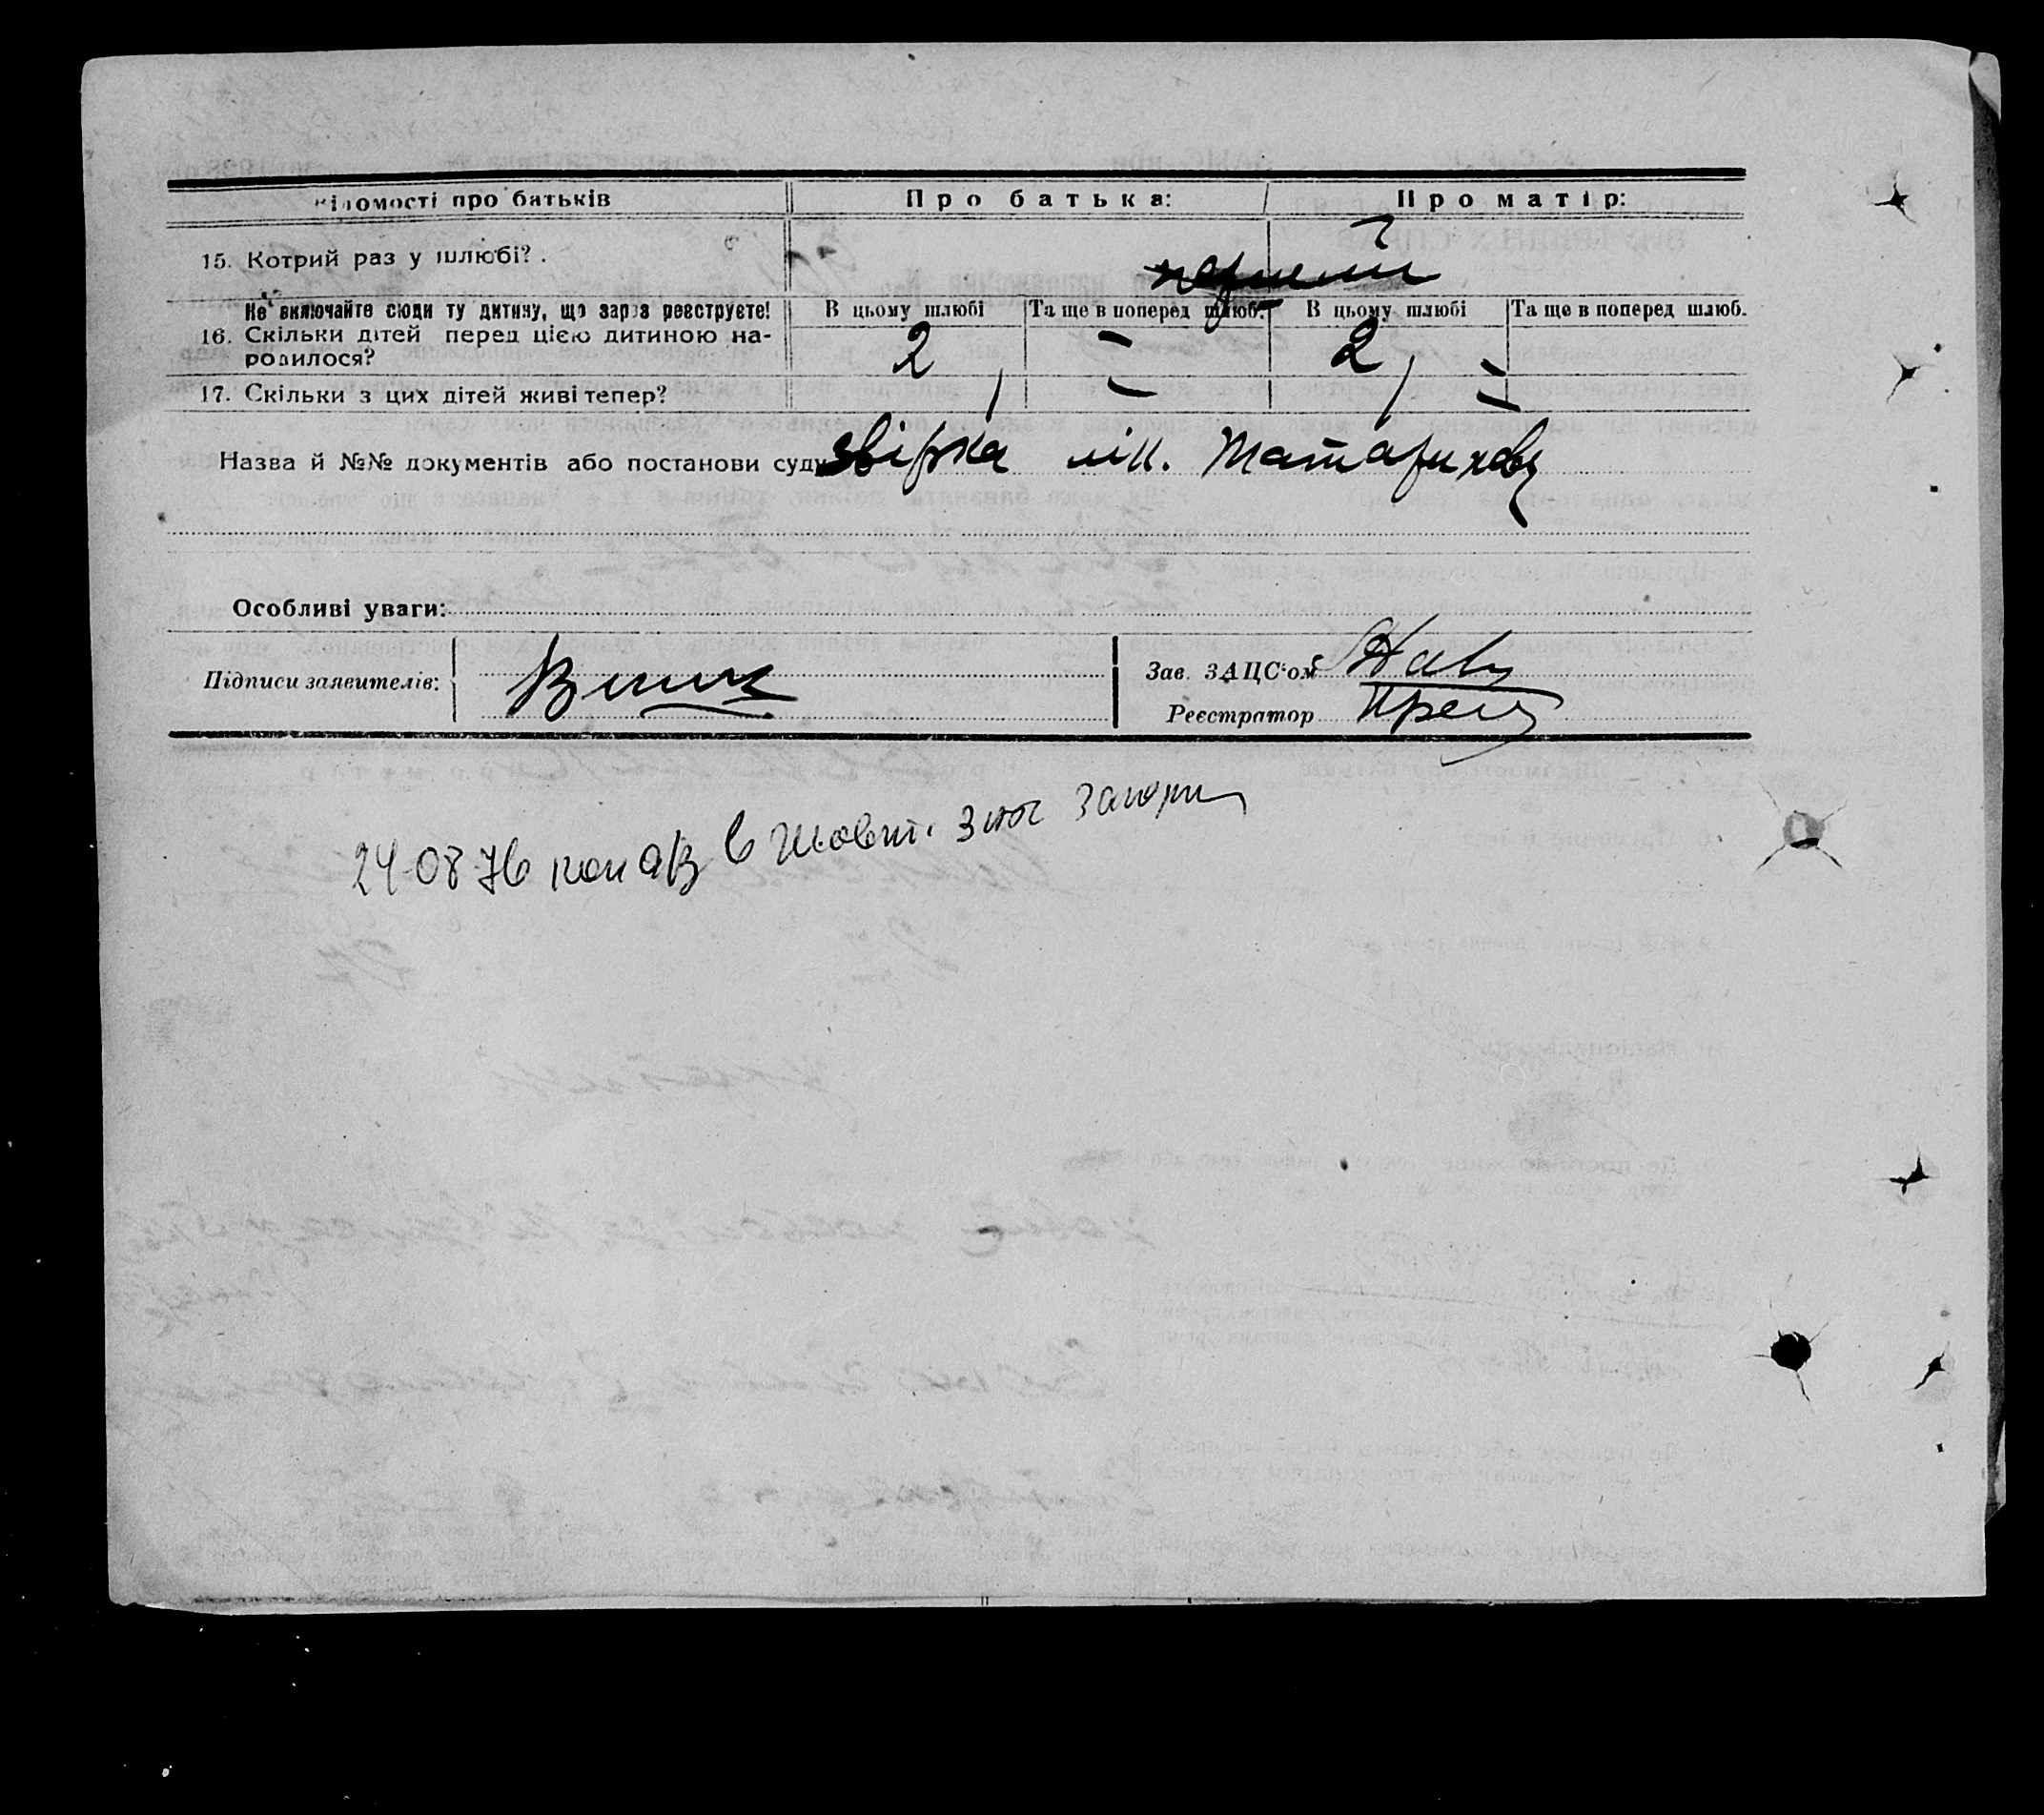 ідомості про батьків Про батька: Про матір:
15. Котрий раз у шлюбі?. перший
Не включайте сюди ту дитину, що зараз реєструєте! В цьому шлюбі Та ще в поперед шлюб. В цьому шлюбі Та ще в поперед шлюб.
16. Скільки дітей перед цією дитиною на- 2 – 2 –
родилося?
17. Скільки з цих дітей живі тепер? – –
Назва й №№ документів або постанови суду звірка лік.
Особливі уваги:
Підписи заявителів: Зав. ЗАЦС'ом
Реєстратор
24-08-76 в Жовт.